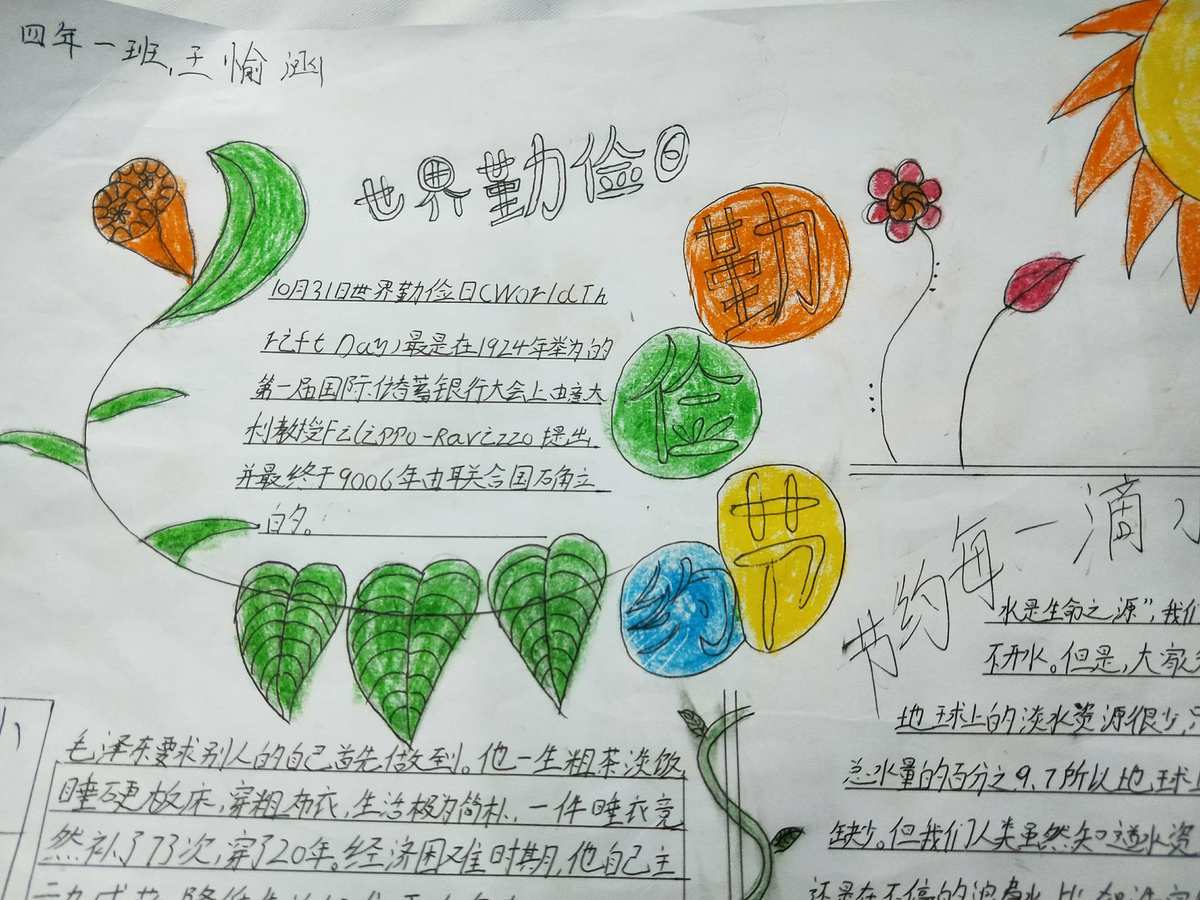 四年一班,王愉涵
世界勤俭日
10月31日世界勤俭日(WorldTh
rift Day)最是在1924年举为的
第一届国际储蓄银行大会上由意大
利教授Filippo-Ravizzo提出
并最终于9006年由联合国石角立
白勺。
勤
俭
节
约
节约每一滴
水是生命之源”,我们
不开水。但是,大家
地球上的淡水资源很少,只
总水量的百分之9.7所以地球
缺少。但我们人类虽然知道水资
还是在不停的浪费水
毛泽东要求别人的自己首先做到。他一生粗茶淡饭
睡硬板床,穿粗布衣,生活极为简朴,一件睡衣竟
然补了73次,穿了20年。经济困难时期,他自己主